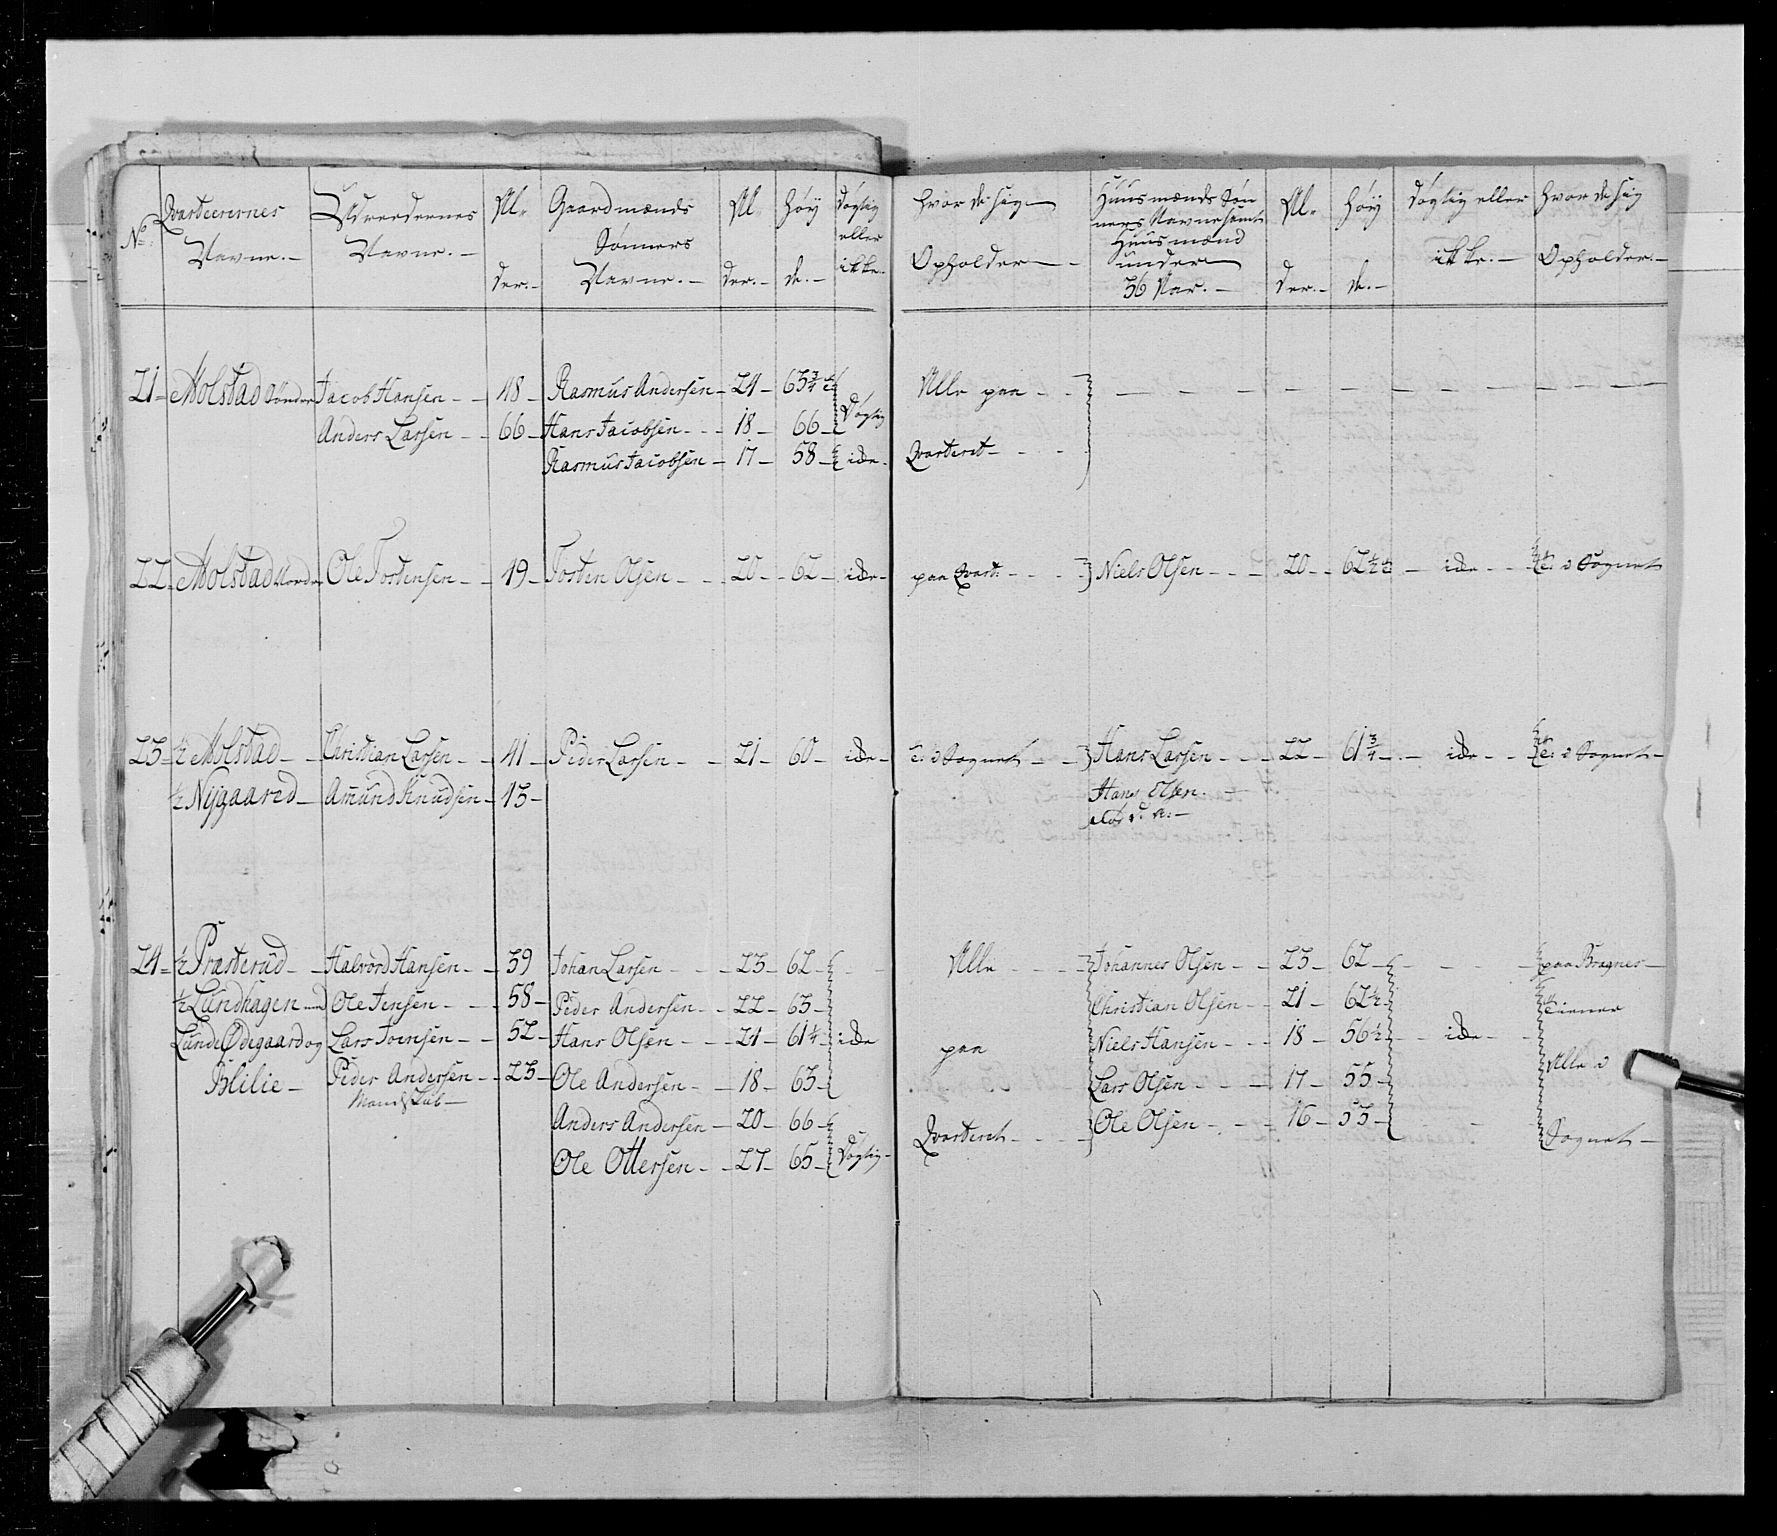 No:
Qvarteerernes
Navne.-
Udreedernes
Navne.-
Al-
der.-
Gaardmænds
Sønners
Navne.-
Al-
der.-
Høy
de.-
Døgtig
eller
ikke.
Hvor de sig
Opholder
Huusmænds Søn
ners Navne samt
Huusmænd
under
36 Aar.-
Al-
der.-
Høy
de.-
Døgtig eller
ikke.-
Hvor de sig
Opholder.-
21- Molstad Søndre Jacob Hansen - - 48- Rasmus Andersen - 24- 63 3/4
Døgtig
Alle paa - -
Anders Larsen - - 66- Hans Jacobsen - - - 18- 66-
Rasmus Jacobsen - 17- 58- ide- Qvarteret - - - -
22- Molstad Nordre Ole Tostensen - - 49- Tosten Olsen - - - 20- - 62- ide- paa Qvart: - - - Niels Olsen - - - 20 - 62 1/2 - ide - - i Sognet
23- 1/2 Molstad - - Christian Larsen - - 41- Peder Larsen - - 21- 60- ide- i Sognet - - Hans Larsen - - - 22 - 61 3/4 - - ide - - i Sognet -
1/2 Nÿgaared - Amund Knudsen - 43-
Hans Olsen. -
24- 1/2 Præsterud - - Halvord Hansen - - 39 Johan Larsen - - - 23- 62-
Alle - - - Johannes Olsen - - 23- 62- - - - paa Bragnes -
1/2 Lundhagen med Ole Jensen - - - 58- Peder Andersen - - 22- 63- Christian Olsen - - 21- 62 1/2 -
Lunde Ødegaard og Lars Joensen - - 52- Hans Olsen - - - 24- 61 1/4 - ide paa Niels Hansen - - - 18- 56 1/2 - - ide - -
Blilie - Peder Andersen - - 23- Ole Andersen - - 18- 63- Lars Olsen - - - 17- 55- Alle i
Anders Andersen - 20- 66- Qvarteret - - - Ole Olsen - - - - 16- 53- Sognet -
Ole Ottersen - - 27- 65- Døgtig-